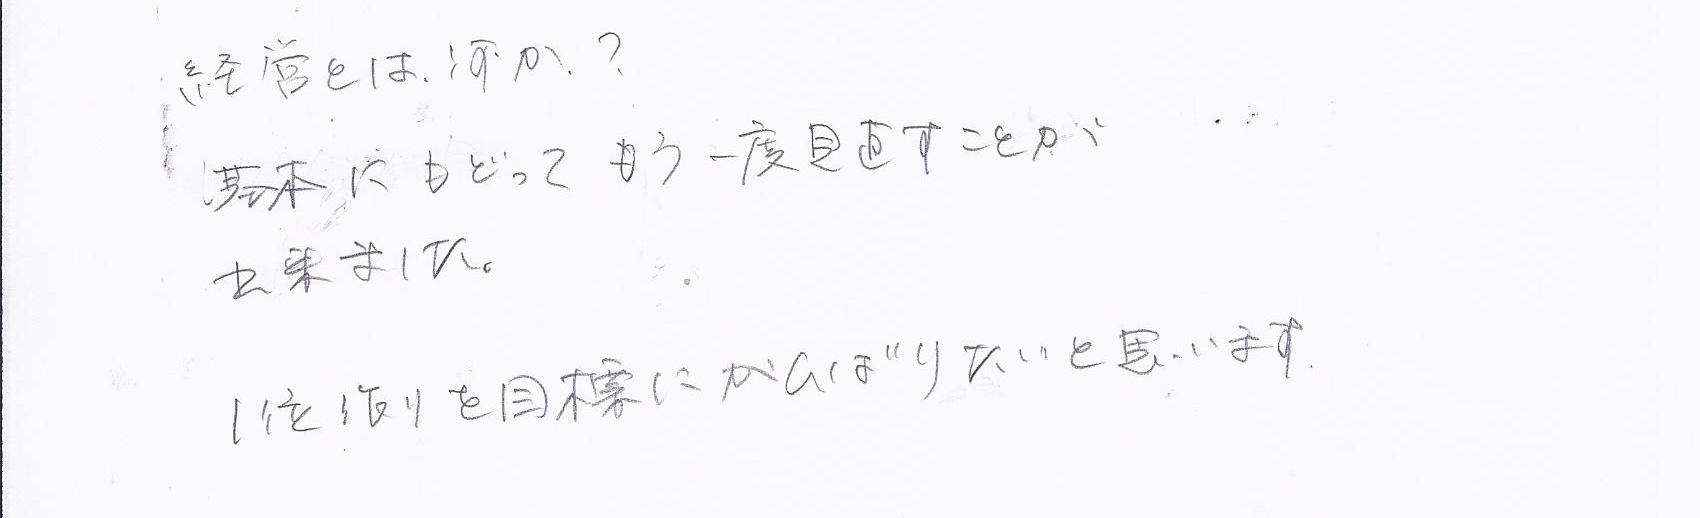 経営とは、何か?
基本にもどってもう一度見直すことが
出来ました。
1位作りを目標にがんばりたいと思います.